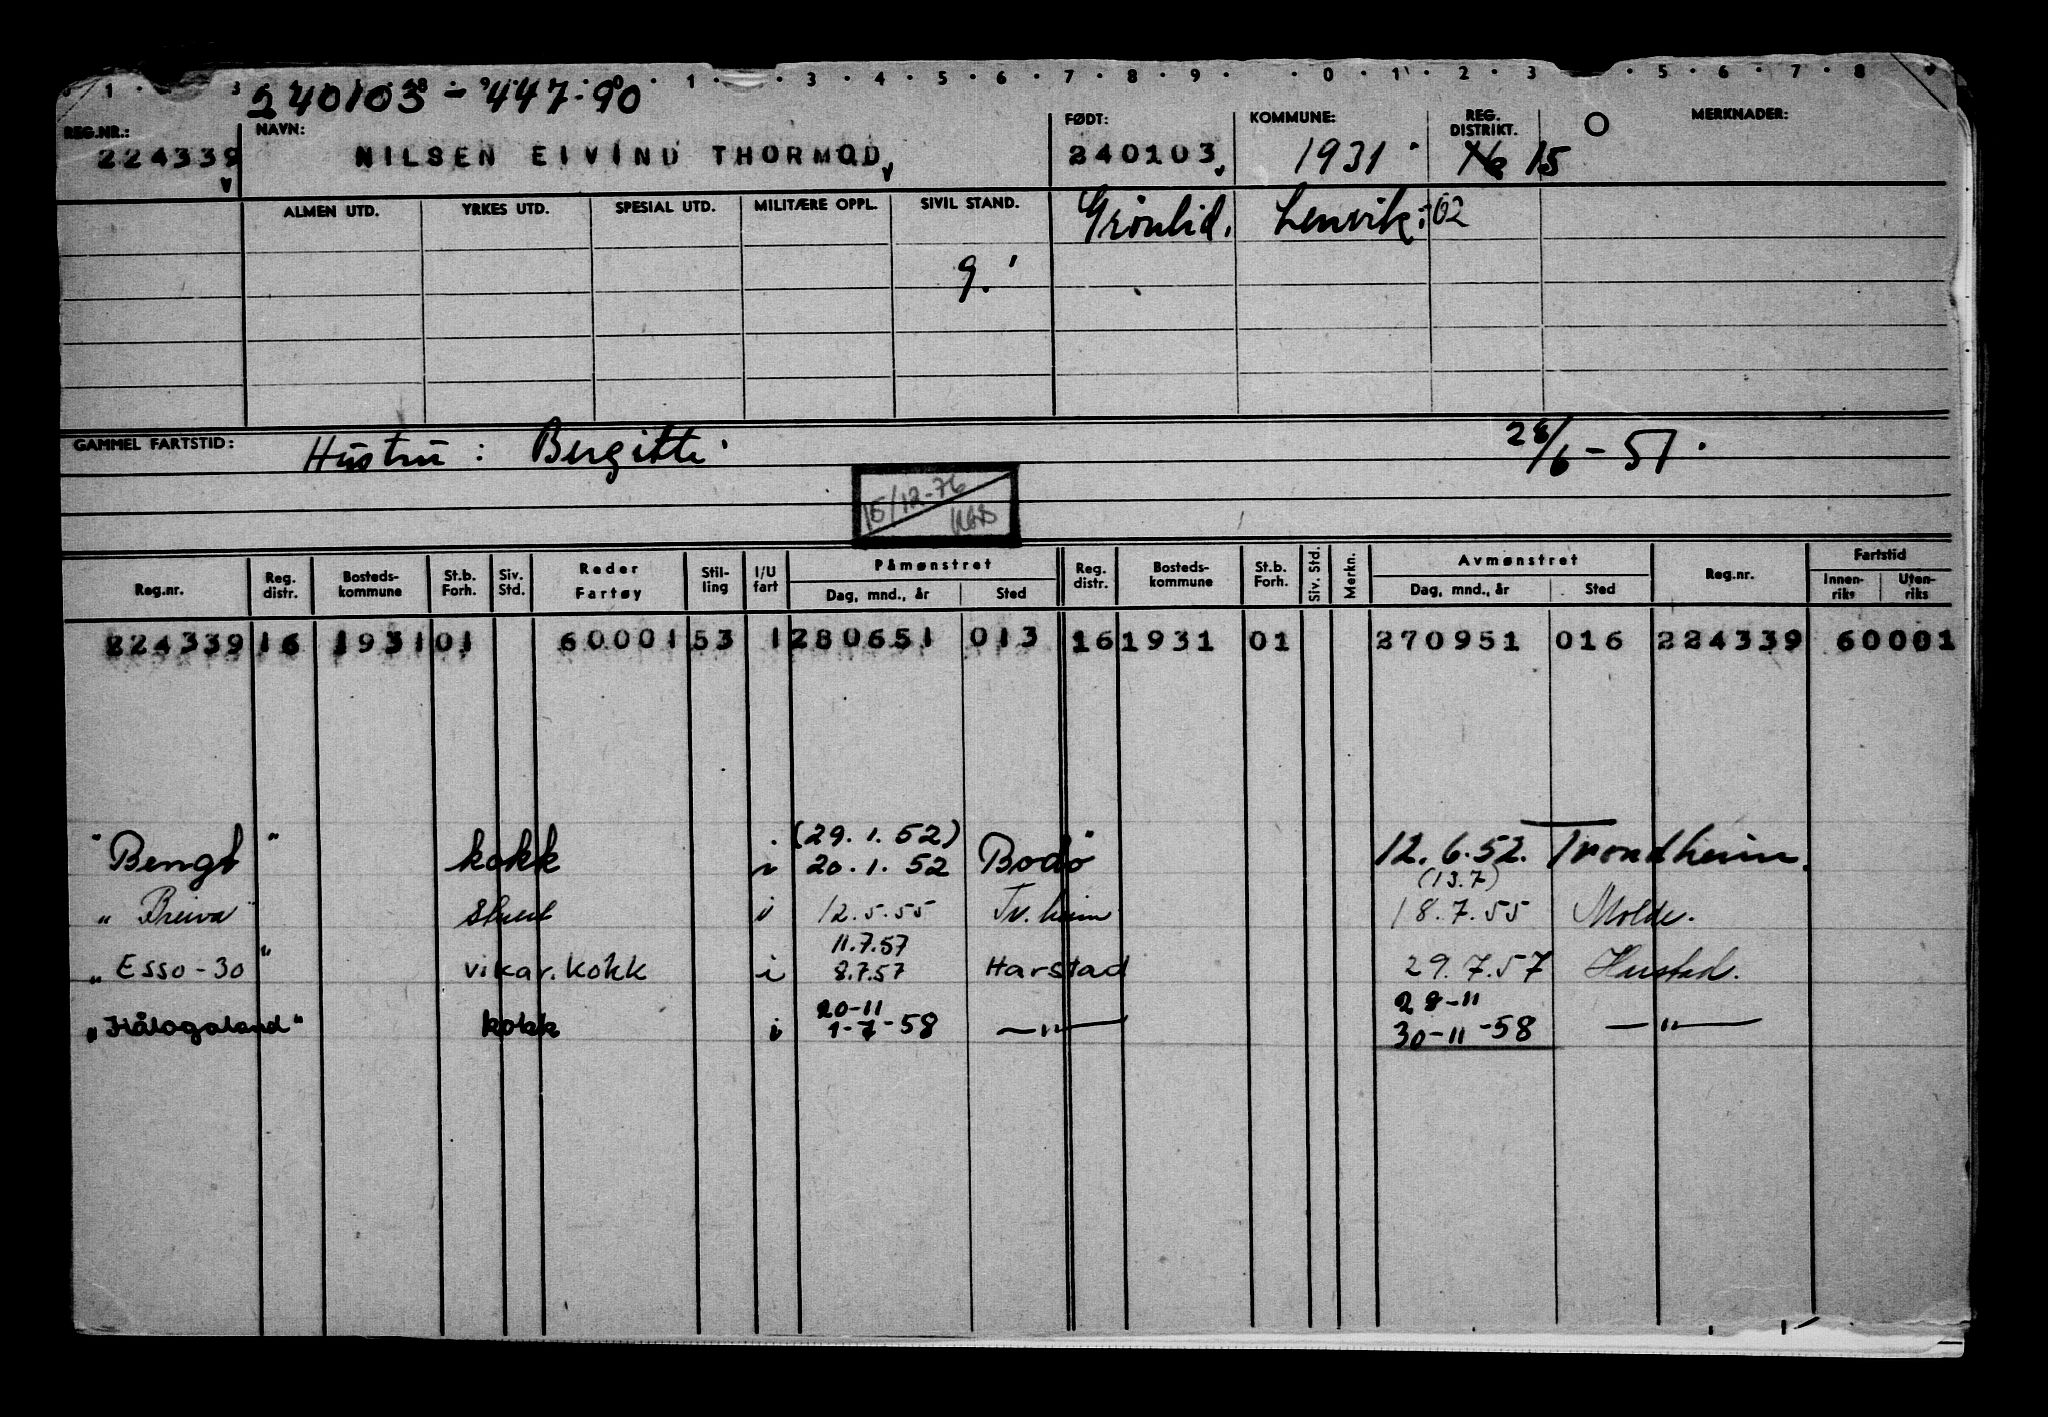 240103 - 447.90
REG.NR.: NAVN: FØDT: KOMMUNE: REG. DISTRIKT. MERKNADER:
224339 NILSEN EIVIND THORMOD 240103 1931 16 15
ALMEN UTD. YRKES UTD. SPESIAL UTD. MILITÆRE OPPL. SIVIL STAND. Grönlid. Lenvik: 62
g.
GAMMEL FARTSTID: Hustru: Bergitte. 28/6-51.
15/12-76
Reg.nr. Reg. distr. Bosteds-kommune St.b. Forh. Siv. Std. Reder Fartøy Stil-ling I/U fart Påmønstret Dag, mnd., år Sted Reg. distr. Bosteds-kommune St.b. Forh. Siv. Std. Merkn. Avmønstret Dag, mnd., år Sted Reg.nr. Fartstid Innen-riks Uten-riks
224339 16 1931 01 60001 53 1 280651 013 16 1931 01 270951 016 224339 60001
(29.1.52)
"Bengt" kokk i 20.1.52 Bodö 12.6.52. Trondheim.
(13.7)
"Breiva" stuert i 12.5.55 Tr.heim 18.7.55 Molde.
11.7.57
"Esso-30" vikar.kokk i 8.7.57 Harstad 29.7.57 Harstad.
20-11 28-11
"Hålogaland" kokk i 1-7-58 —"— 30-11-58 —"—